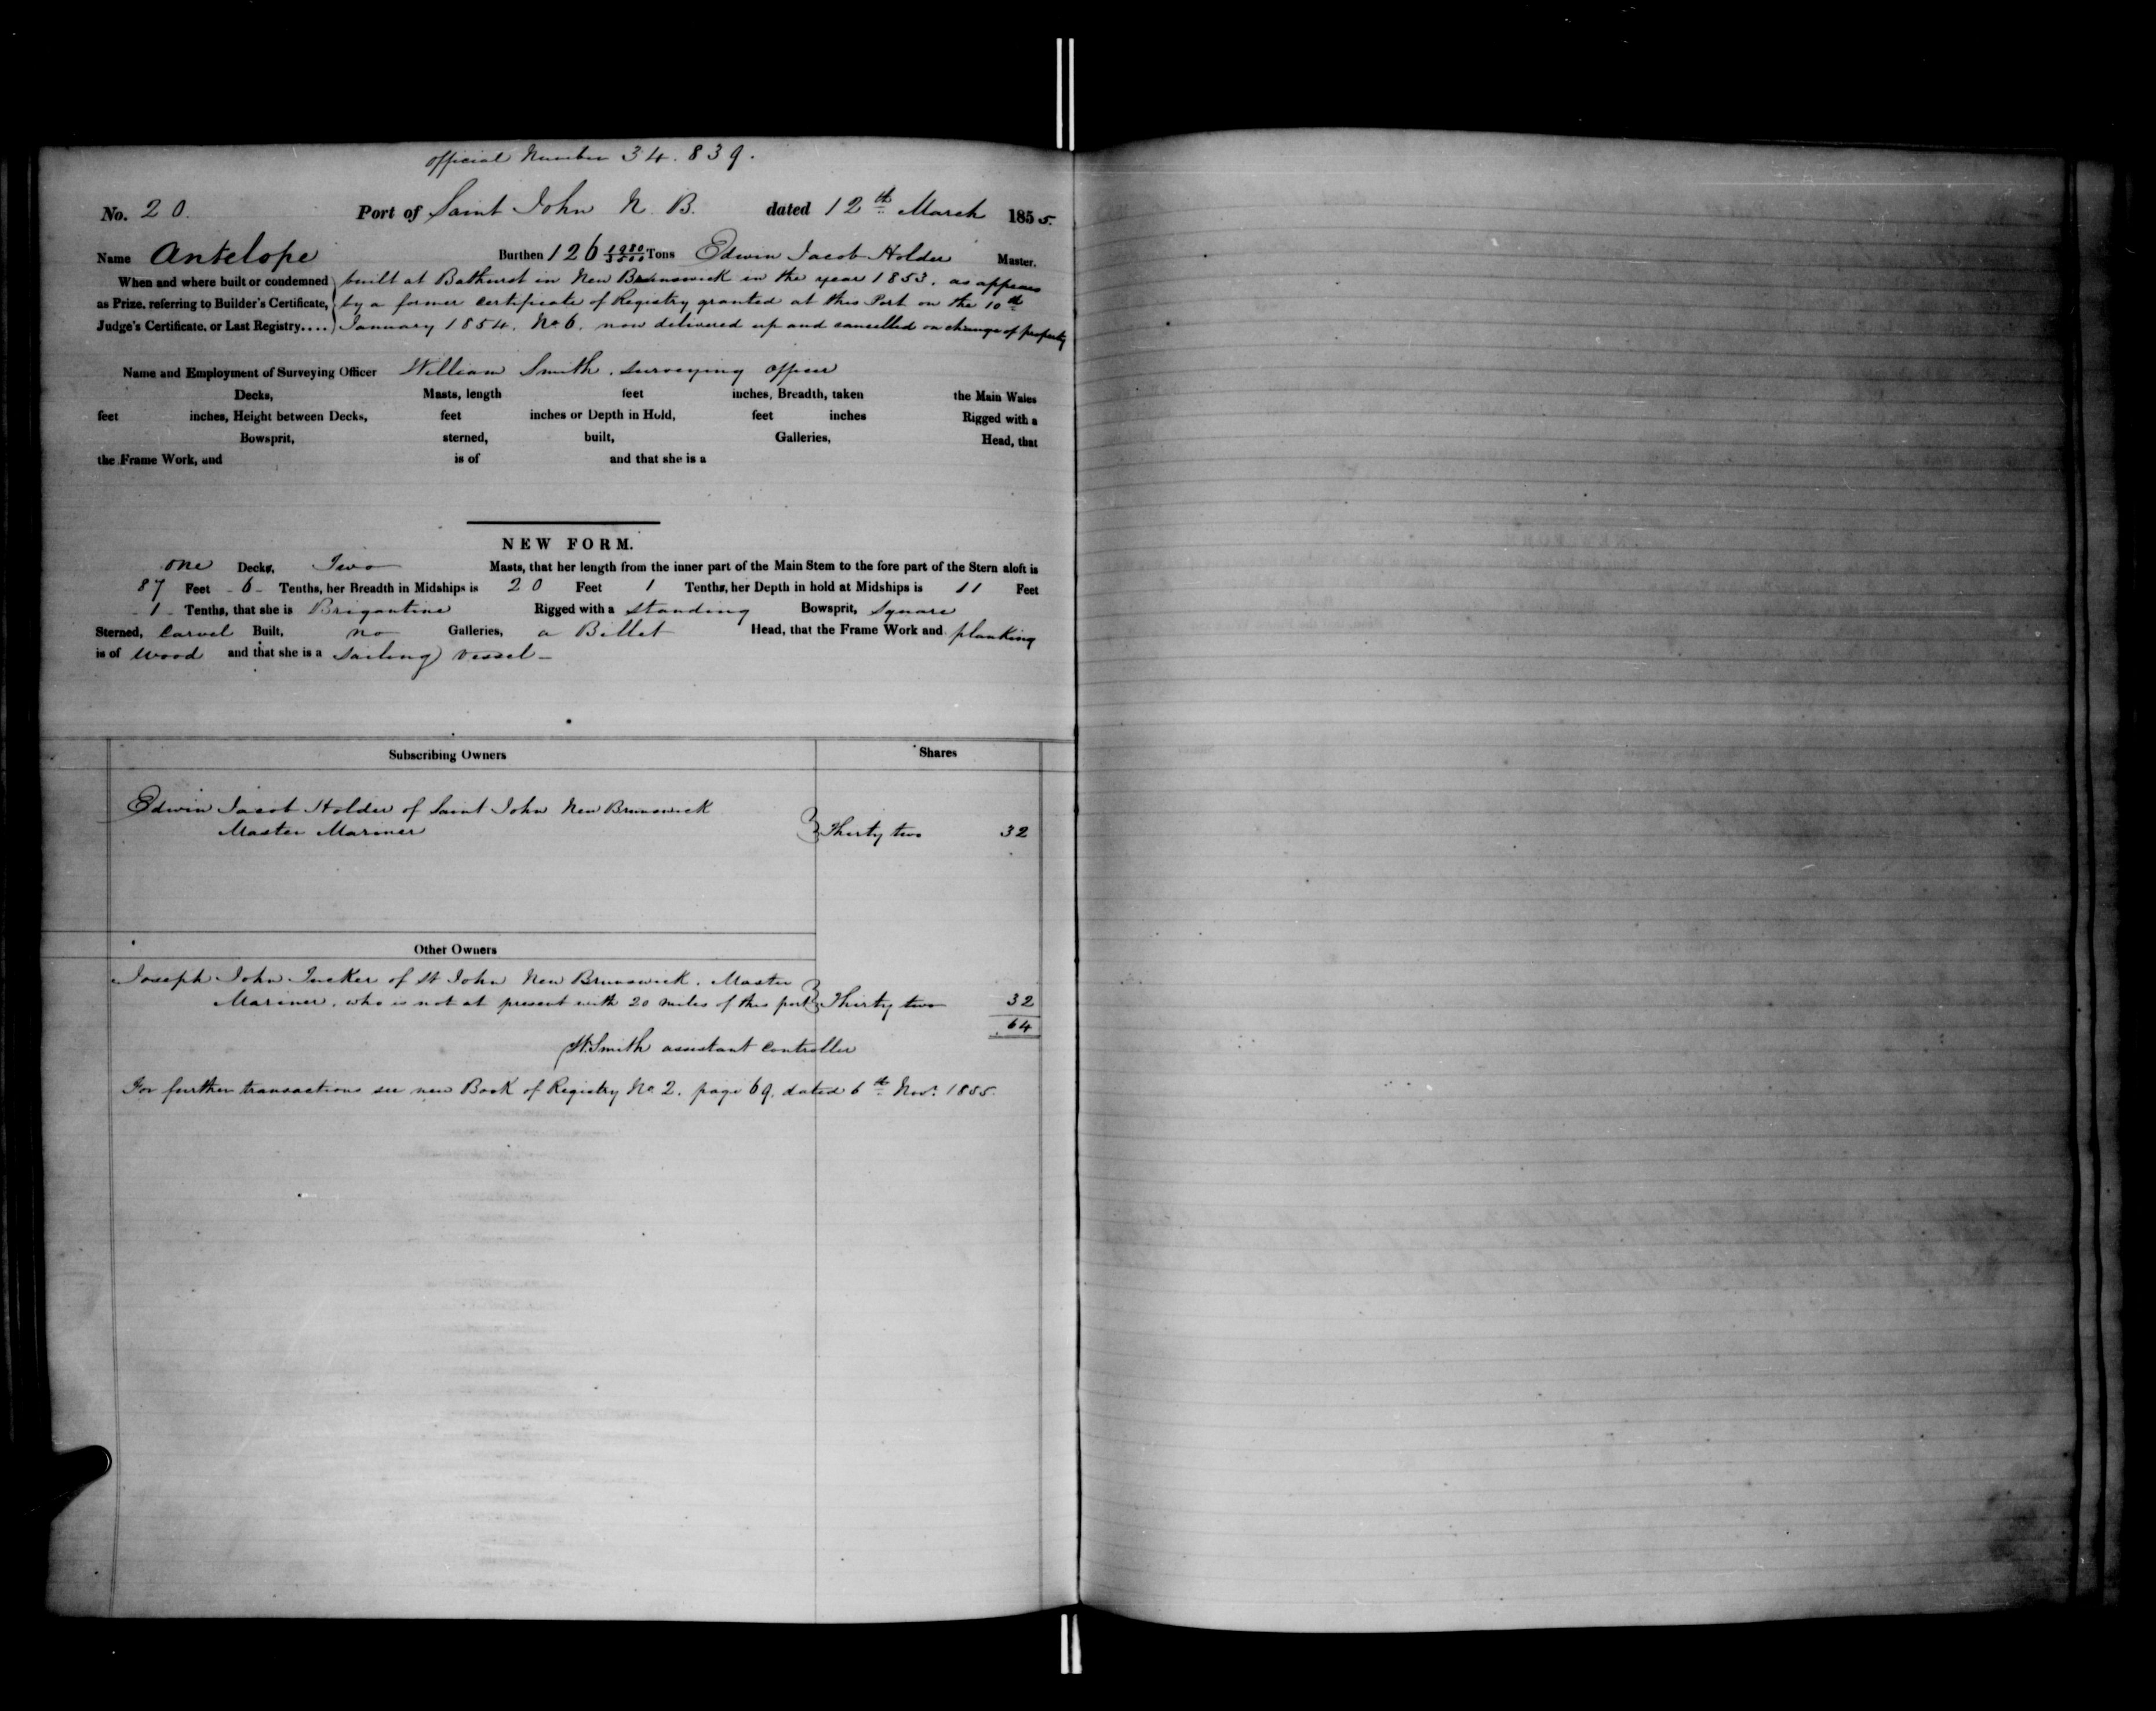 official Number 34.839.
No. 20. Port of Saint John N. B. dated 12th March 1855.
Name Antelope Burthen 126 1980/3500 Tons Edwin Jacob Holder Master.
When and where built or condemned built at Bathurst in New Brunswick in the year 1853. as appears
as Prize, referring to Builder's Certificate, by a former certificate of Registry granted at this Port on the 10th
Judge's Certificate, or Last Registry.... January 1854. No 6. now delivered up and cancelled on change of property
Name and Employment of Surveying Officer William Smith. Surveying officer
Decks, Masts, length feet inches, Breadth, taken the Main Wales
feet inches, Height between Decks, feet inches or Depth in Hold, feet inches Rigged with a
Bowsprit, sterned, built, Galleries, Head, that
the Frame Work, and is of and that she is a
NEW FORM.
one Decks, Two Masts, that her length from the inner part of the Main Stem to the fore part of the Stern aloft is
87 Feet - 6 - Tenths, her Breadth in Midships is 20 Feet 1 Tenths, her Depth in hold at Midships is 11 Feet
- 1 - Tenths, that she is Brigantine Rigged with a standing Bowsprit, Square
Sterned, Carvel Built, no Galleries, a Billet Head, that the Frame Work and planking
is of wood and that she is a sailing vessel -
Subscribing Owners Shares
Edwin Jacob Holder of Saint John New Brunswick
Master Mariner } Thirty two 32
Other Owners
Joseph John Tucker of St John New Brunswick. Master
Mariner, who is not at present with 20 miles of this port } Thirty two 32
64
W. Smith assistant Controller
For further transactions see new Book of Registry No 2. page 69. dated 6th Nov. 1855.